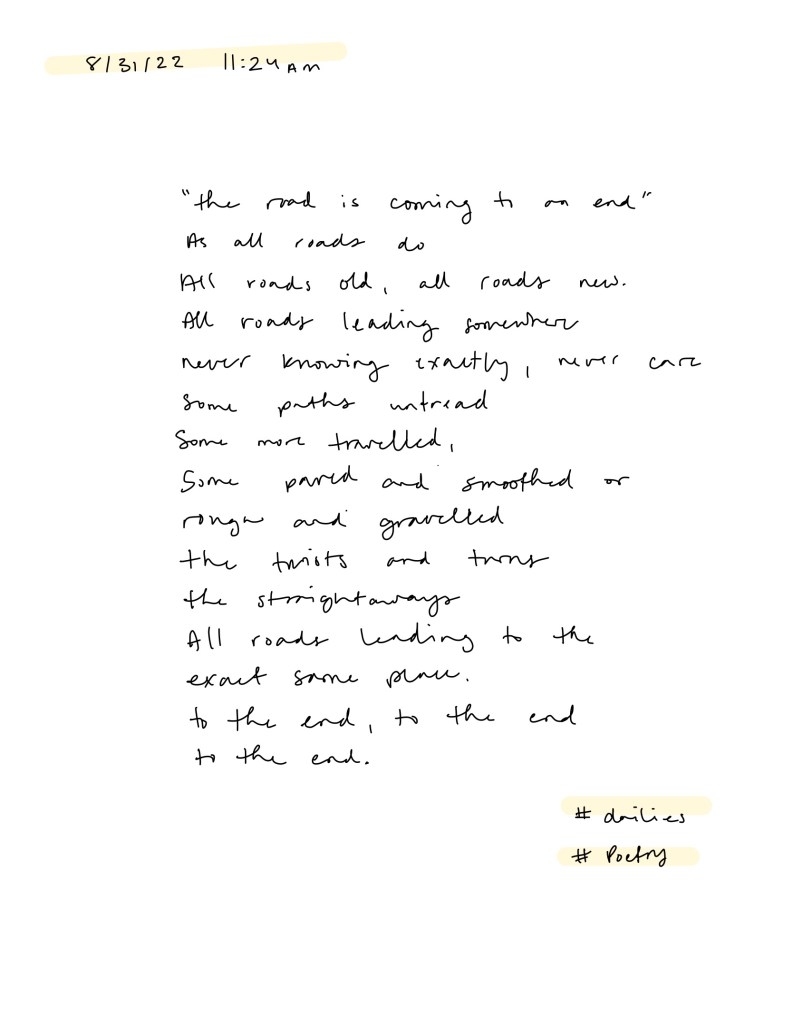 8/31/22 11:24 AM
"the road is coming to an end"
As all roads do
All roads old, all roads new.
All roads leading somewhere
never knowing exactly, never care
Some paths untread
Some more travelled,
Some paved and smoothed or
rough and gravelled
the twists and turns
the straightaways
All roads leading to the
exact same place.
to the end, to the end
to the end.
# dailies
# Poetry